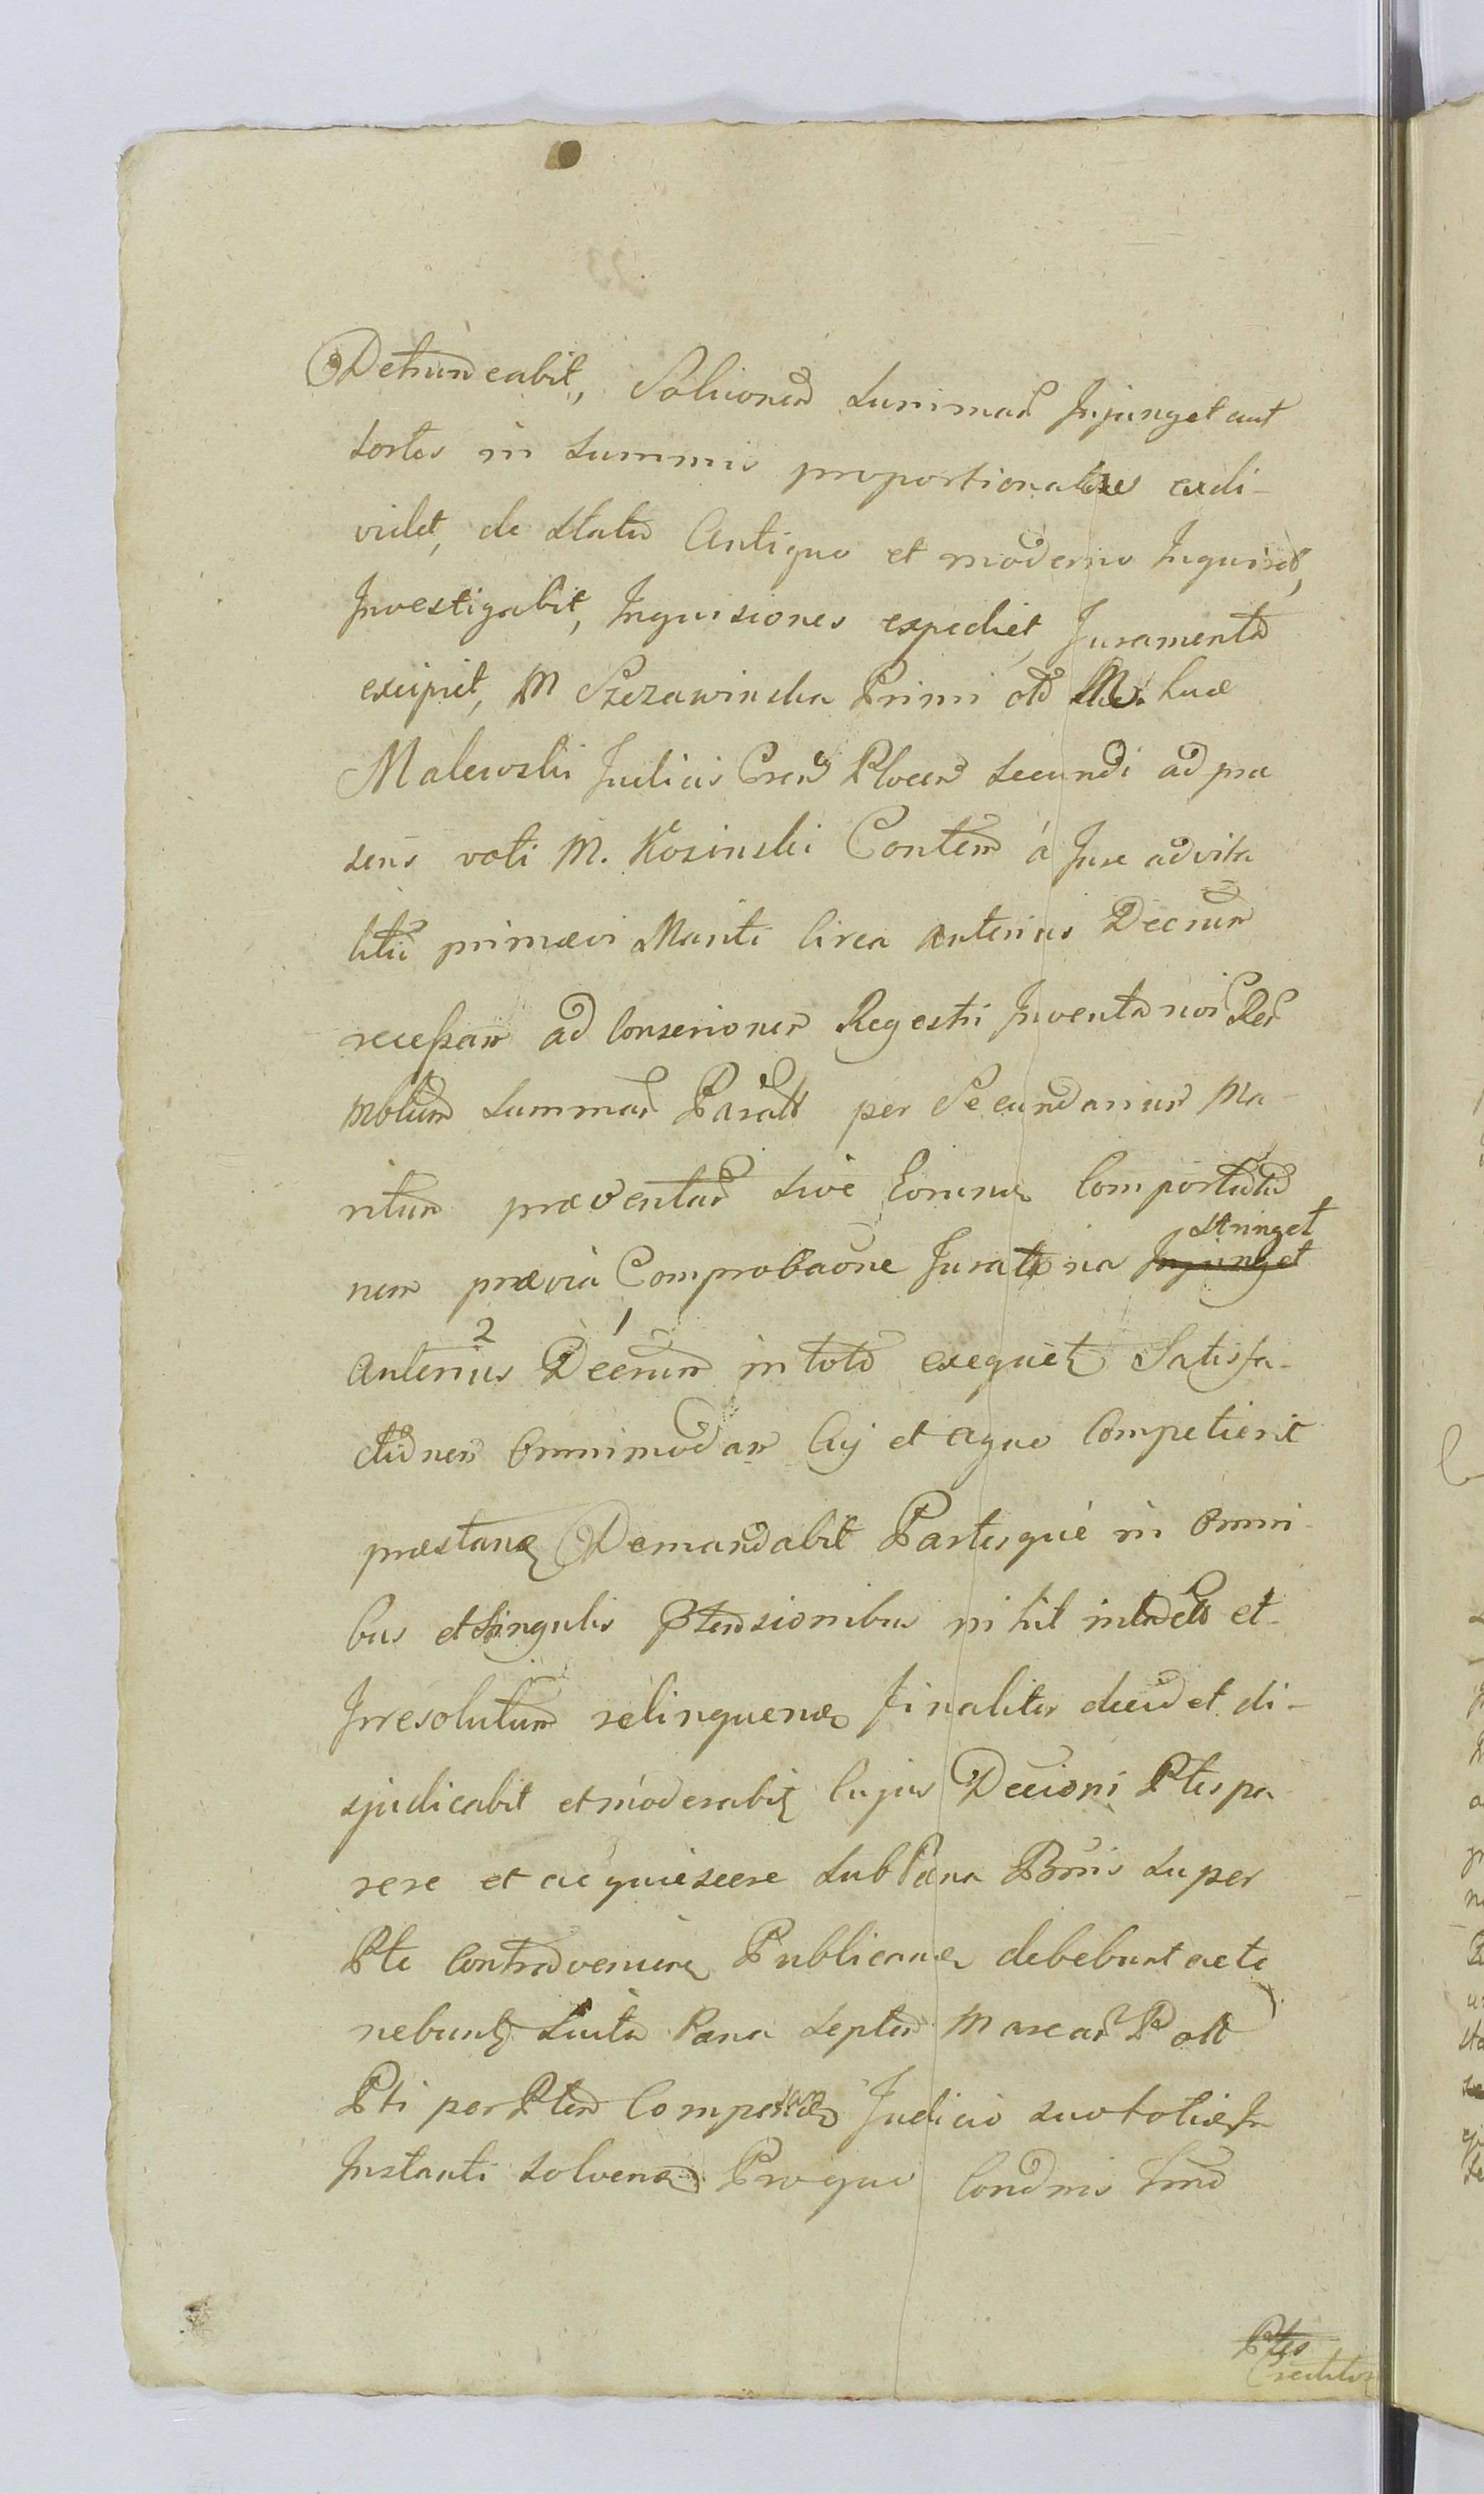 Detruncabit, Solucionem Summar Injunget aut
sortes in Summis proportionatas exdi-
videt, de Statu Antiquo et moderno Inquiret,
Investigabit, Inquisiones expediet, Juramenta
excipiet, M Szczawinska Primi olim M. huc
Malewski Judicis Cren Plocen Secundi ad præ
sens voti M. Kosinski Contem á Jure advita
litio primævi Mariti Circa anterius Decrum
recessam ad Conserionem Regestri Inventarioi Rer
mblium Summar Parat per Secundarium Ma-
ritum præventar sive Eorum Comportatio
nem prævia Comprobaone Juratoria Stringet
Injunget
2 1
anterius Decrum in toto exequet Satisfa-
ctionem Omnimodam Cuj et a quo Competierit
præstanq Demandabit Partesque in Omni-
bus et Singulis Ptensionibus nihil intadto et
Irresolutum relinquenæ finaliter decidet di-
sjudicabit et moderabit Cujus Decioni Ptes pa
rere et acquiescere Sub Pæna Bonis super
Pte Contraveniene Publicanæ debebunt ac te
nebunt luita Pæna Septem Marcar Polt
Pti per Ptem Comparan Judicio suo toties In
Instanti Solvena Pro quo Condnis
Ptes
Creditor